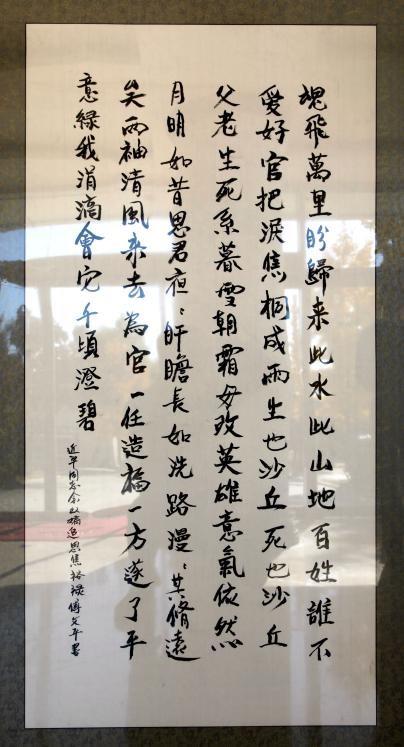 魂飛萬里盼歸来此水此山地百姓誰不
愛好官把淚焦桐成雨生也沙丘死也沙丘
父老生死系暮雪朝霜毋改英雄意氣依然
月明如昔思君夜〻肝膽長如洗路漫〻其脩遠
矣兩袖清風来去為官一任造福一方遂了平
意綠我涓滴會它千頃澄碧
近平同志念奴嬌追思焦裕禄傅文平書